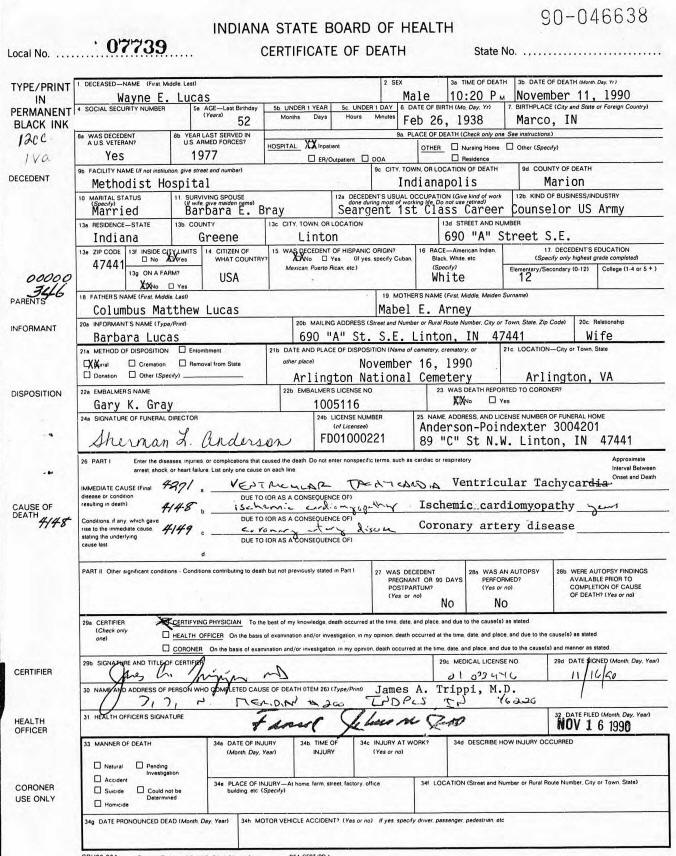 90-046638
INDIANA STATE BOARD OF HEALTH
Local No. 07739 CERTIFICATE OF DEATH State No.
TYPE/PRINT IN PERMANENT BLACK INK
12cc
1va
DECEDENT
1 DECEASED—NAME (First Middle Last) 2 SEX 3a TIME OF DEATH 3b. DATE OF DEATH (Month. Day. Yr)
Wayne E. Lucas Male 10:20 P M November 11, 1990
4 SOCIAL SECURITY NUMBER 5a AGE—Last Birthday (Years) 5b UNDER 1 YEAR 5c UNDER 1 DAY 6 DATE OF BIRTH (Mo, Day, Yr) 7 BIRTHPLACE (City and State or Foreign Country)
52 Months Days Hours Minutes Feb 26, 1938 Marco, IN
8a WAS DECEDENT A U.S. VETERAN? 8b YEAR LAST SERVED IN U.S ARMED FORCES? 9a. PLACE OF DEATH (Check only one See instructions)
Yes 1977 HOSPITAL XX Inpatient ER/Outpatient DOA OTHER Nursing Home Other (Specify) Residence
9b FACILITY NAME (If not institution, give street and number) 9c CITY, TOWN, OR LOCATION OF DEATH 9d COUNTY OF DEATH
Methodist Hospital Indianapolis Marion
10 MARITAL STATUS (Specify) 11 SURVIVING SPOUSE (If wife, give maiden name) 12a DECEDENT'S USUAL OCCUPATION (Give kind of work done during most of working life Do not use retired) 12b. KIND OF BUSINESS/INDUSTRY
Married Barbara E. Bray Seargent 1st Class Career Counselor US Army
13a RESIDENCE—STATE 13b COUNTY 13c CITY, TOWN, OR LOCATION 13d STREET AND NUMBER
Indiana Greene Linton 690 "A" Street S.E.
13e ZIP CODE 13f INSIDE CITY LIMITS No XX Yes 14 CITIZEN OF WHAT COUNTRY? 15 WAS DECEDENT OF HISPANIC ORIGIN? XX No Yes (If yes, specify Cuban, Mexican, Puerto Rican, etc.) 16 RACE—American Indian, Black, White, etc (Specify) 17 DECEDENT'S EDUCATION (Specify only highest grade completed)
47441 13g ON A FARM? XX No Yes USA White Elementary/Secondary (0-12) 12 College (1-4 or 5 +)
00000
346
PARENTS
18 FATHER'S NAME (First, Middle, Last) 19 MOTHER'S NAME (First, Middle, Maiden Surname)
Columbus Matthew Lucas Mabel E. Arney
INFORMANT
20a INFORMANT'S NAME (Type/Print) 20b MAILING ADDRESS (Street and Number or Rural Route Number, City or Town, State, Zip Code) 20c Relationship
Barbara Lucas 690 "A" St. S.E. Linton, IN 47441 Wife
DISPOSITION
21a METHOD OF DISPOSITION Entombment 21b DATE AND PLACE OF DISPOSITION (Name of cemetery, crematory, or other place) 21c LOCATION—City or Town, State
XX Burial Cremation Removal from State November 16, 1990
Donation Other (Specify) Arlington National Cemetery Arlington, VA
22a EMBALMER'S NAME 22b EMBALMER'S LICENSE NO 23 WAS DEATH REPORTED TO CORONER?
Gary K. Gray 1005116 XX No Yes
24a SIGNATURE OF FUNERAL DIRECTOR 24b LICENSE NUMBER (of Licensee) 25 NAME, ADDRESS, AND LICENSE NUMBER OF FUNERAL HOME
Sherman L. Anderson FD01000221 Anderson-Poindexter 3004201
89 "C" St N.W. Linton, IN 47441
CAUSE OF DEATH
4148
26 PART I Enter the diseases, injuries, or complications that caused the death. Do not enter nonspecific terms, such as cardiac or respiratory arrest, shock, or heart failure. List only one cause on each line. Approximate Interval Between Onset and Death
IMMEDIATE CAUSE (Final disease or condition resulting in death) 4271 a Ventricular Tachycardia Ventricular Tachycardia
DUE TO (OR AS A CONSEQUENCE OF)
4148 b ischemic cardiomyopathy Ischemic cardiomyopathy years
Conditions, if any, which gave rise to the immediate cause stating the underlying cause last
DUE TO (OR AS A CONSEQUENCE OF)
4149 c coronary artery disease Coronary artery disease
DUE TO (OR AS A CONSEQUENCE OF)
d
PART II Other significant conditions - Conditions contributing to death but not previously stated in Part I 27 WAS DECEDENT PREGNANT OR 90 DAYS POSTPARTUM? (Yes or no) 28a WAS AN AUTOPSY PERFORMED? (Yes or no) 28b WERE AUTOPSY FINDINGS AVAILABLE PRIOR TO COMPLETION OF CAUSE OF DEATH? (Yes or no)
No No
CERTIFIER
29a CERTIFIER (Check only one)
CERTIFYING PHYSICIAN To the best of my knowledge, death occurred at the time, date, and place, and due to the cause(s) as stated
HEALTH OFFICER On the basis of examination and/or investigation, in my opinion, death occurred at the time, date, and place, and due to the cause(s) as stated
CORONER On the basis of examination and/or investigation, in my opinion, death occurred at the time, date, and place, and due to the cause(s) and manner as stated
29b SIGNATURE AND TITLE OF CERTIFIER 29c MEDICAL LICENSE NO 29d DATE SIGNED (Month, Day, Year)
MD 11/16/90
30 NAME AND ADDRESS OF PERSON WHO COMPLETED CAUSE OF DEATH (ITEM 26) (Type/Print) James A. Trippi, M.D.
N MERIDIAN #200 INDPLS IN
HEALTH OFFICER
31 HEALTH OFFICER'S SIGNATURE 32 DATE FILED (Month, Day, Year)
NOV 16 1990
CORONER USE ONLY
33 MANNER OF DEATH 34a DATE OF INJURY (Month, Day, Year) 34b TIME OF INJURY 34c INJURY AT WORK? (Yes or no) 34d DESCRIBE HOW INJURY OCCURRED
Natural Pending Investigation
Accident
Suicide Could not be Determined
Homicide
34e PLACE OF INJURY—At home, farm, street, factory, office building, etc (Specify) 34f LOCATION (Street and Number or Rural Route Number, City or Town, State)
34g DATE PRONOUNCED DEAD (Month, Day, Year) 34h MOTOR VEHICLE ACCIDENT? (Yes or no) If yes, specify driver, passenger, pedestrian, etc